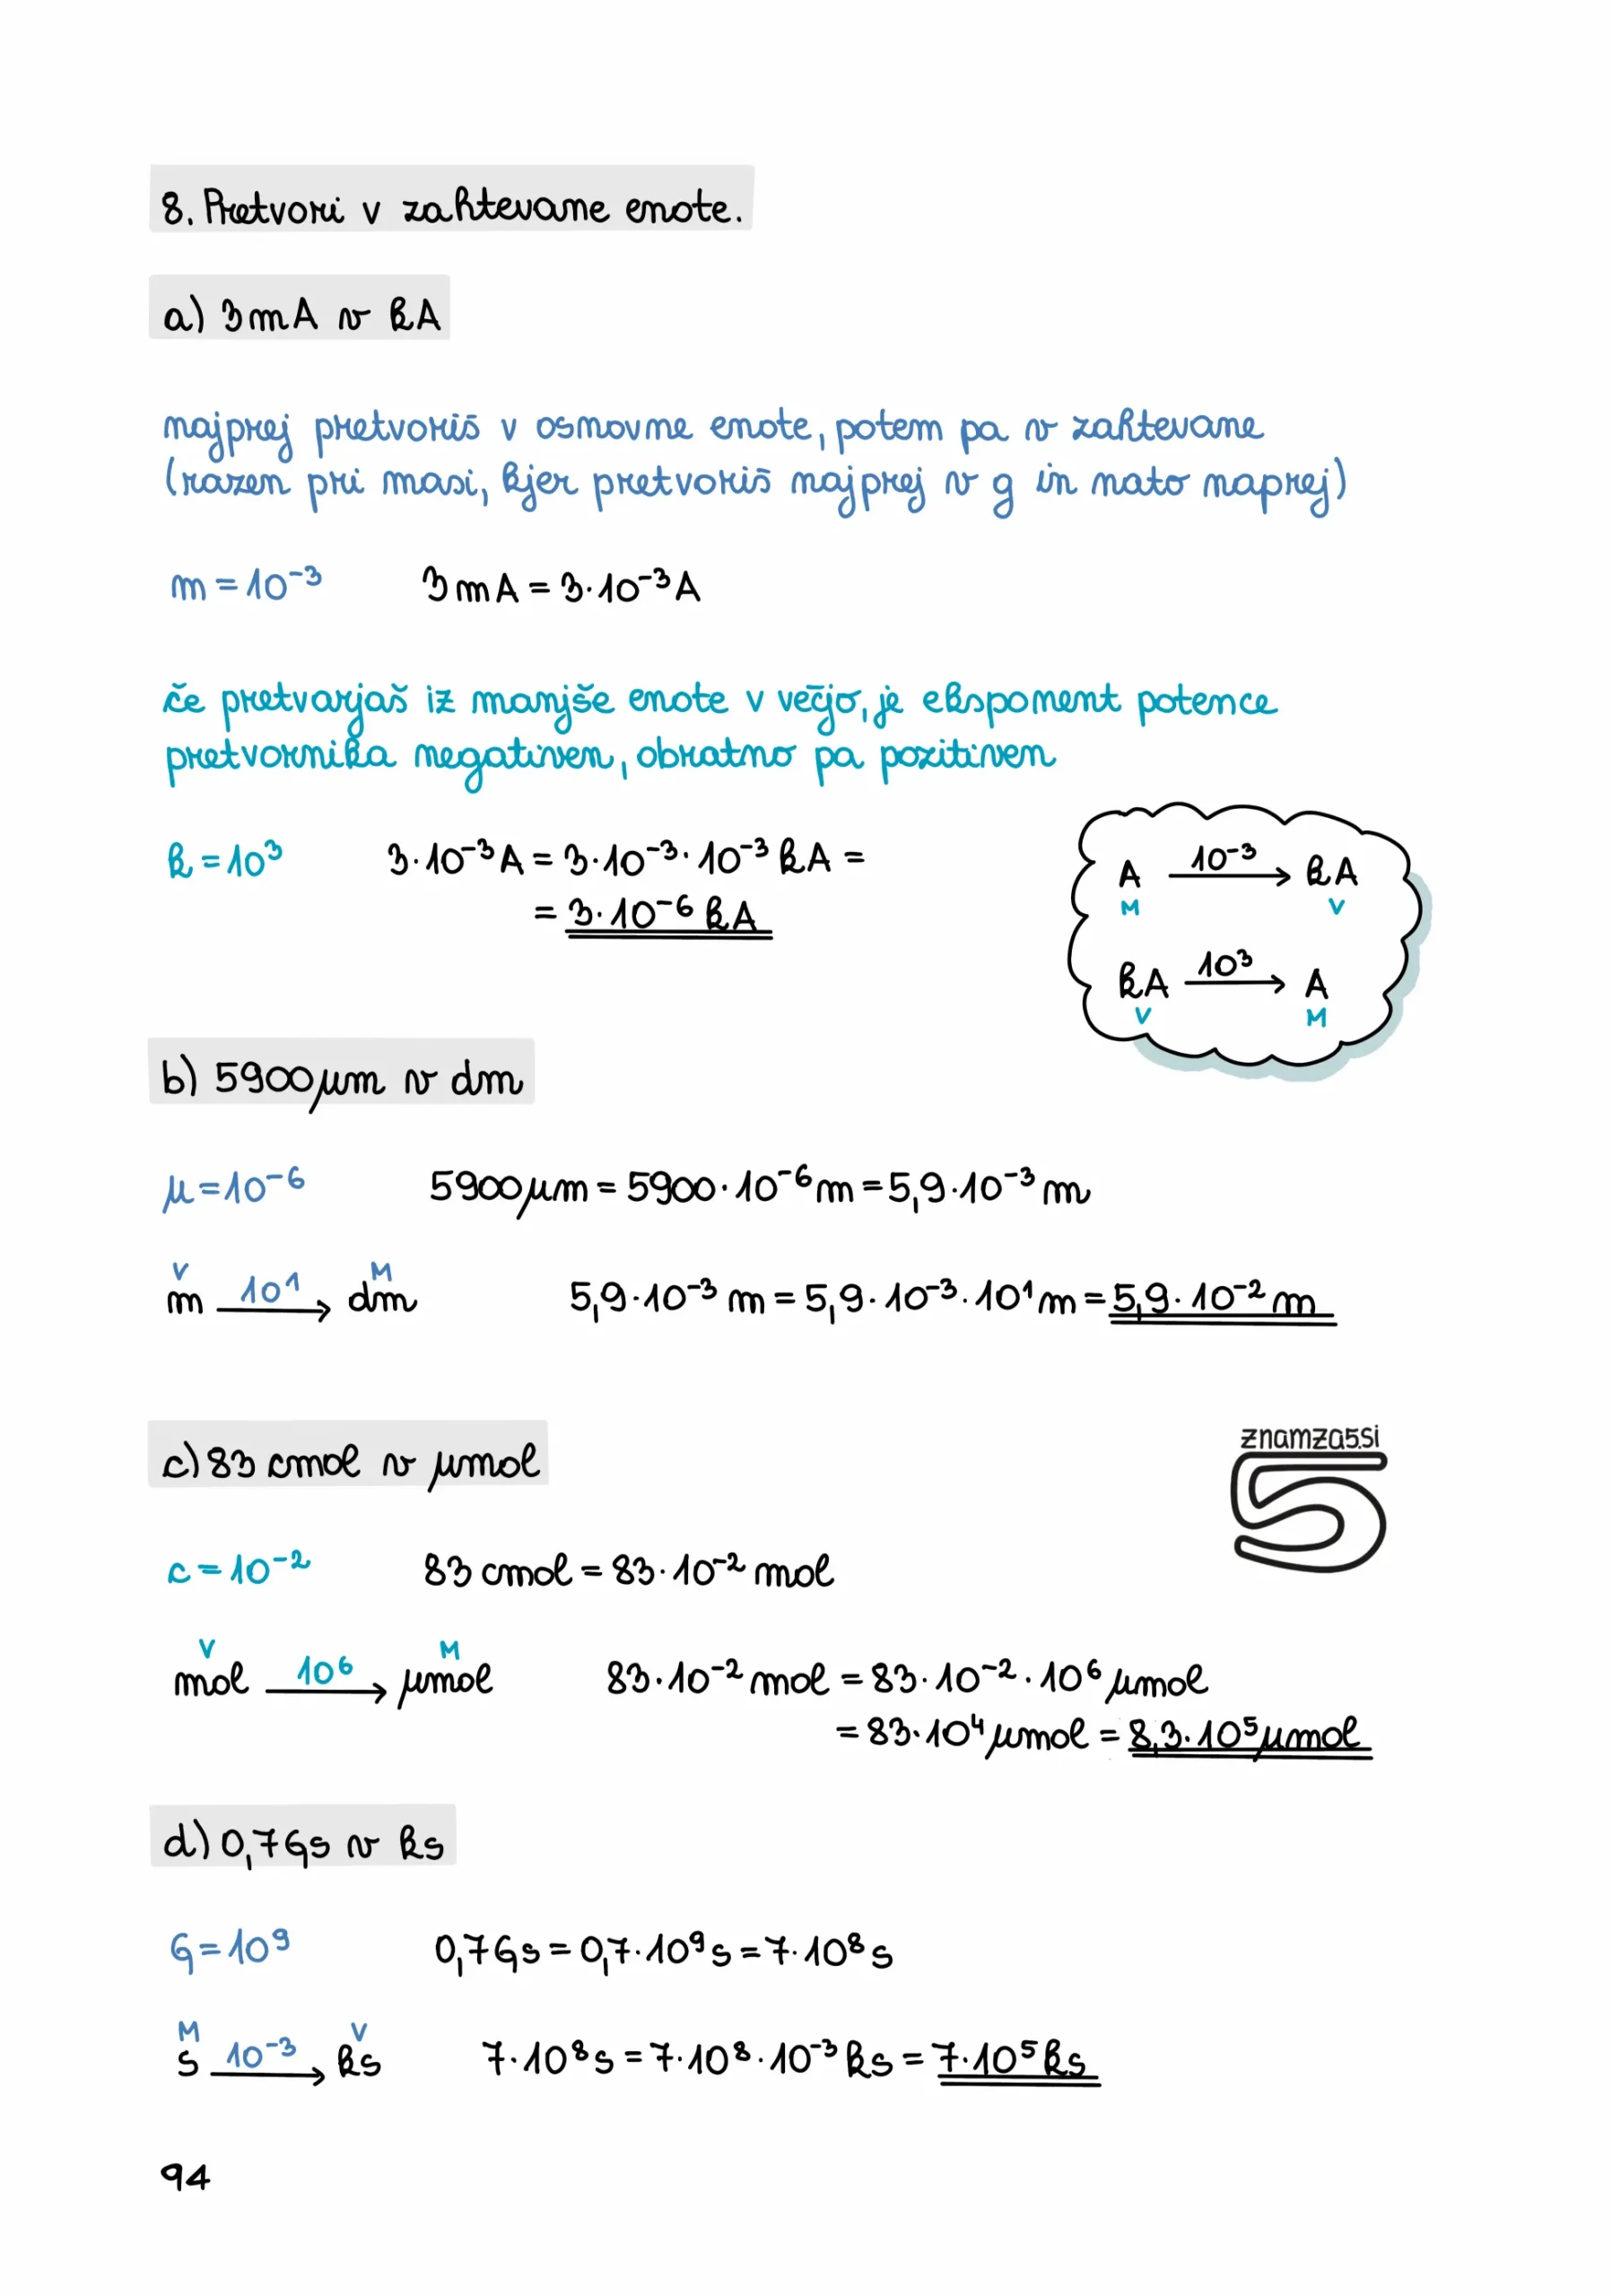 8. Pretvori v zahtevane enote.
a) 3mA v kA
najprej pretvoriš v osnovne enote, potem pa v zahtevane
(razen pri masi, kjer pretvoriš najprej v g in nato naprej)
m = 10⁻³ 3mA = 3·10⁻³A
če pretvarjaš iz manjše enote v večjo, je eksponent potence
pretvornika negativen, obratno pa pozitiven
k = 10³ 3·10⁻³A = 3·10⁻³·10⁻³kA =
= 3·10⁻⁶kA
A 10⁻³→ kA
M V
kA 10³→ A
V M
b) 5900μm v dm
μ = 10⁻⁶ 5900μm = 5900·10⁻⁶m = 5,9·10⁻³m
V M
m 10¹→ dm 5,9·10⁻³m = 5,9·10⁻³·10¹m = 5,9·10⁻²m
c) 83 cmol v μmol
znamza5.si
5
c = 10⁻² 83 cmol = 83·10⁻²mol
V M
mol 10⁶→ μmol 83·10⁻²mol = 83·10⁻²·10⁶μmol
= 83·10⁴μmol = 8,3·10⁵μmol
d) 0,7Gs v ks
G = 10⁹ 0,7Gs = 0,7·10⁹s = 7·10⁸s
M V
s 10⁻³→ ks 7·10⁸s = 7·10⁸·10⁻³ks = 7·10⁵ks
94